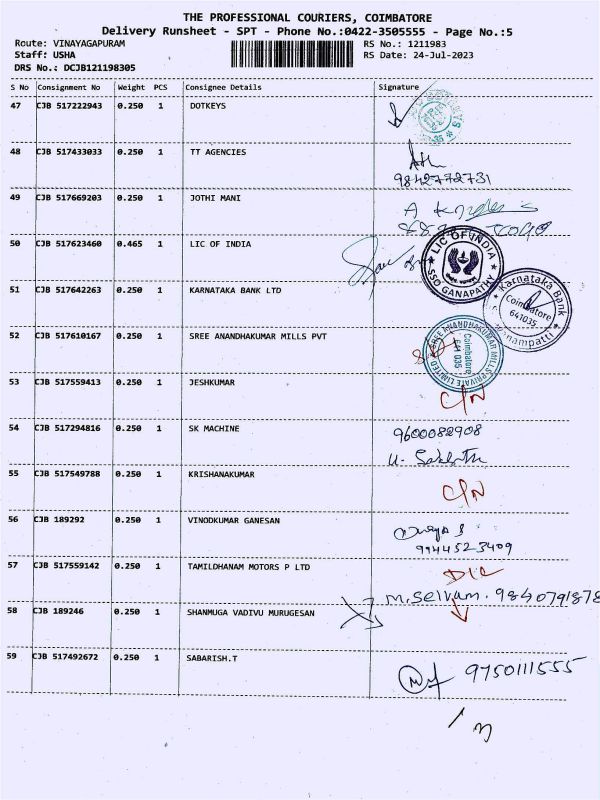 THE PROFESSIONAL COURIERS, COIMBATORE
Delivery Runsheet - SPT - Phone No.:0422-3505555 - Page No.:5
Route: VINAYAGAPURAM RS No.: 1211983
Staff: USHA RS Date: 24-Jul-2023
DRS No.: DCJB121198305
S No Consignment No Weight PCS Consignee Details Signature
47 CJB 517222943 0.250 1 DOTKEYS
48 CJB 517433033 0.250 1 TT AGENCIES
9842772731
49 CJB 517669203 0.250 1 JOTHI MANI
50 CJB 517623460 0.465 1 LIC OF INDIA
LIC OF INDIA
SSO GANAPATHY
51 CJB 517642263 0.250 1 KARNATAKA BANK LTD
Karnataka Bank
Coimbatore
641035
52 CJB 517610167 0.250 1 SREE ANANDHAKUMAR MILLS PVT
SREE ANANDHAKUMAR MILLS PRIVATE LIMITED
Coimbatore
641 035
53 CJB 517559413 0.250 1 JESHKUMAR
C/N
54 CJB 517294816 0.250 1 SK MACHINE
9600082908
55 CJB 517549788 0.250 1 KRISHANAKUMAR
C/N
56 CJB 189292 0.250 1 VINODKUMAR GANESAN
9944523409
57 CJB 517559142 0.250 1 TAMILDHANAM MOTORS P LTD
D/L
M. Selvam. 9840791878
58 CJB 189246 0.250 1 SHANMUGA VADIVU MURUGESAN
59 CJB 517492672 0.250 1 SABARISH.T
9750111555